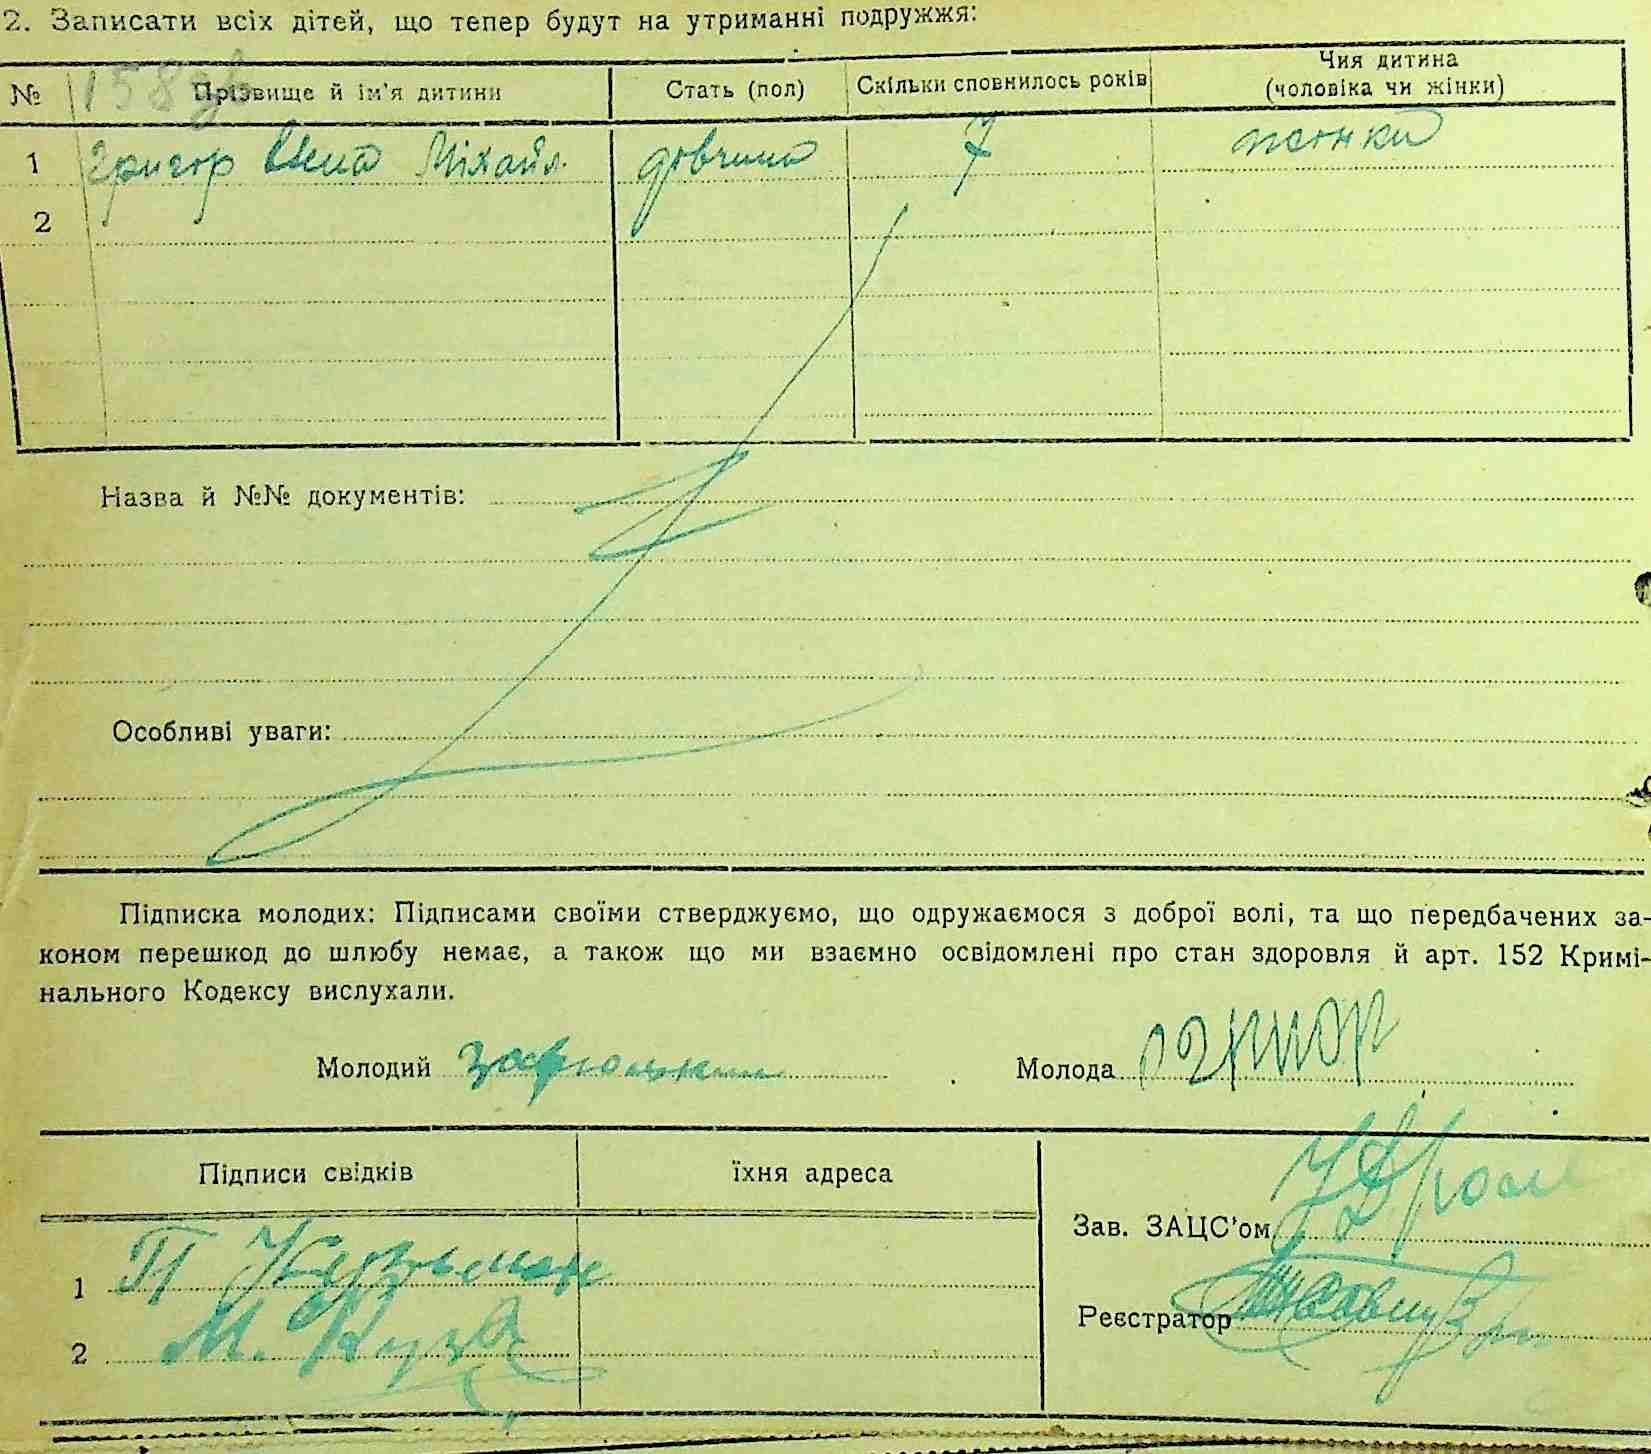 2. Записати всіх дітей, що тепер будут на утриманні подружжя:
№ Прізвище й ім'я дитини Стать (пол) Скільки сповнилось років Чия дитина (чоловіка чи жінки)
1 Григор Михайл. дівчина 7 жонки
2
Назва й №№ документів:
Особливі уваги:
Підписка молодих: Підписами своїми стверджуємо, що одружаємося з доброї волі, та що передбачених за-
коном перешкод до шлюбу немає, а також що ми взаємно освідомлені про стан здоровля й арт. 152 Кримі-
нального Кодексу вислухали.
Молодий Молода Григор
Підписи свідків їхня адреса
Зав. ЗАЦС'ом
1 П
Реєстратор
2 М. Куза